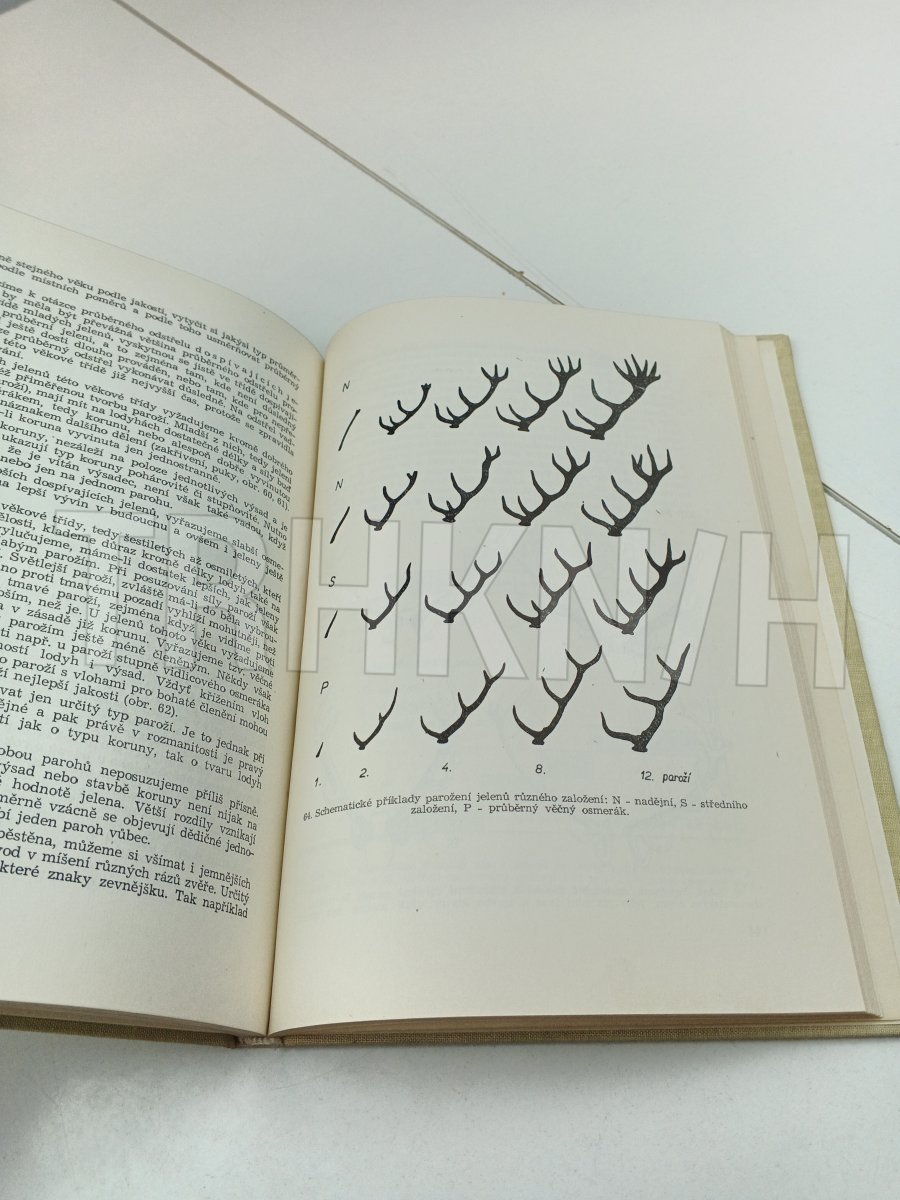 ně stejného věku podle jakosti, vytyčit si jakýsi typ průměr-
podle místních poměrů a podle toho usměrňovat průběrný
k otázce průběrného odstřelu dospívajících je-
by měla být převážná většina průběrného odstřelu pro-
třídě mladých jelenů, vyskytnou se jistě ve třídě dospívají-
průběrní jeleni, a to zejména tam, kde průběrný
ještě dosti dlouho prováděn, nebo tam, kde
průběrný odstřel vykonávat důsledně. Na odstřel vad-
této věkové třídě již nejvyšší čas, protože se zpravidla
jelenů této věkové třídy vyžadujeme kromě dobrého
přiměřenou tvorbu paroží. Mladší z nich, tedy jeleni
mají mít na lodyhách dostatečné délky a síly buď
tedy korunu, nebo alespoň dobře vyvinutou
náznakem dalšího dělení (zakřivení, puky, obr. 60, 61).
koruna vyvinuta jen jednostranně.
koruny, nezáleží na poloze jednotlivých výsad a je
ukazují typ koruny pohárovité či stupňovité. Nutno
že je vítán výsadec, není však také vadou, když
nebo jen na jednom parohu.
dospívajících jelenů, vyřazujeme slabší osme-
na lepší vývin v budoucnu a ovšem i jeleny ještě
věkové třídy, tedy šestiletých až osmiletých, kteří
klademe důraz kromě délky lodyh také na
vylučujeme, máme-li dostatek lepších, jak jeleny
slabým parožím. Při posuzování síly paroží však
Světlejší paroží, zvláště má-li do běla vybrou-
no proti tmavému pozadí vyhlíží mohutněji, než
tmavé paroží, zejména když je vidíme proti
než je. U jelenů tohoto věku vyžadujeme
v zásadě již korunu. Vyřazujeme tzv. věčné
parožím ještě méně členěným. Někdy však
např. u paroží stupně vidlicového osmeráka
lodyh i výsad. Vždyť křížením vloh
paroží s vlohami pro bohaté členění mohou
nejlepší jakosti (obr. 62).
vat jen určitý typ paroží. Je to jednak při
a pak právě v rozmanitosti je pravý
jak o typu koruny, tak o tvaru lodyh
obou parohů neposuzujeme příliš přísně.
výsad nebo stavbě koruny není nijak na
hodnotě jelena. Větší rozdíly vznikají
měrně vzácně se objevují dědičné jedno-
bí jeden paroh vůbec.
pěstěna, můžeme si všímat i jemnějších
vod v míšení různých rázů zvěře. Určitý
které znaky zevnějšku. Tak například
N
N
S
P
1. 2. 4. 8. 12. paroží
64. Schematické příklady parožení jelenů různého založení: N - nadějní, S - středního
založení, P - průběrný věčný osmerák.